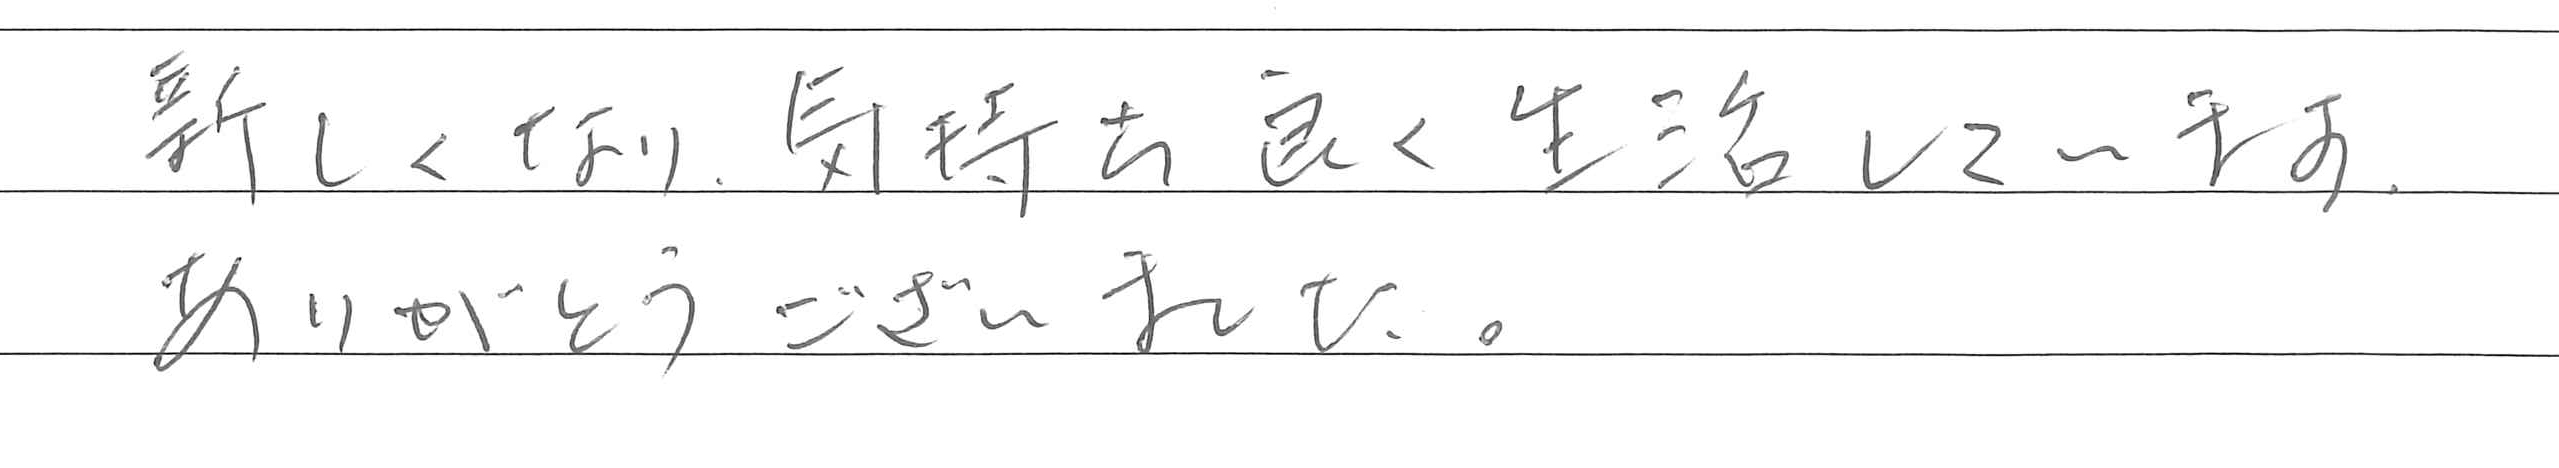 新しくなり、気持ち良く生活しています。
ありがとうございました。